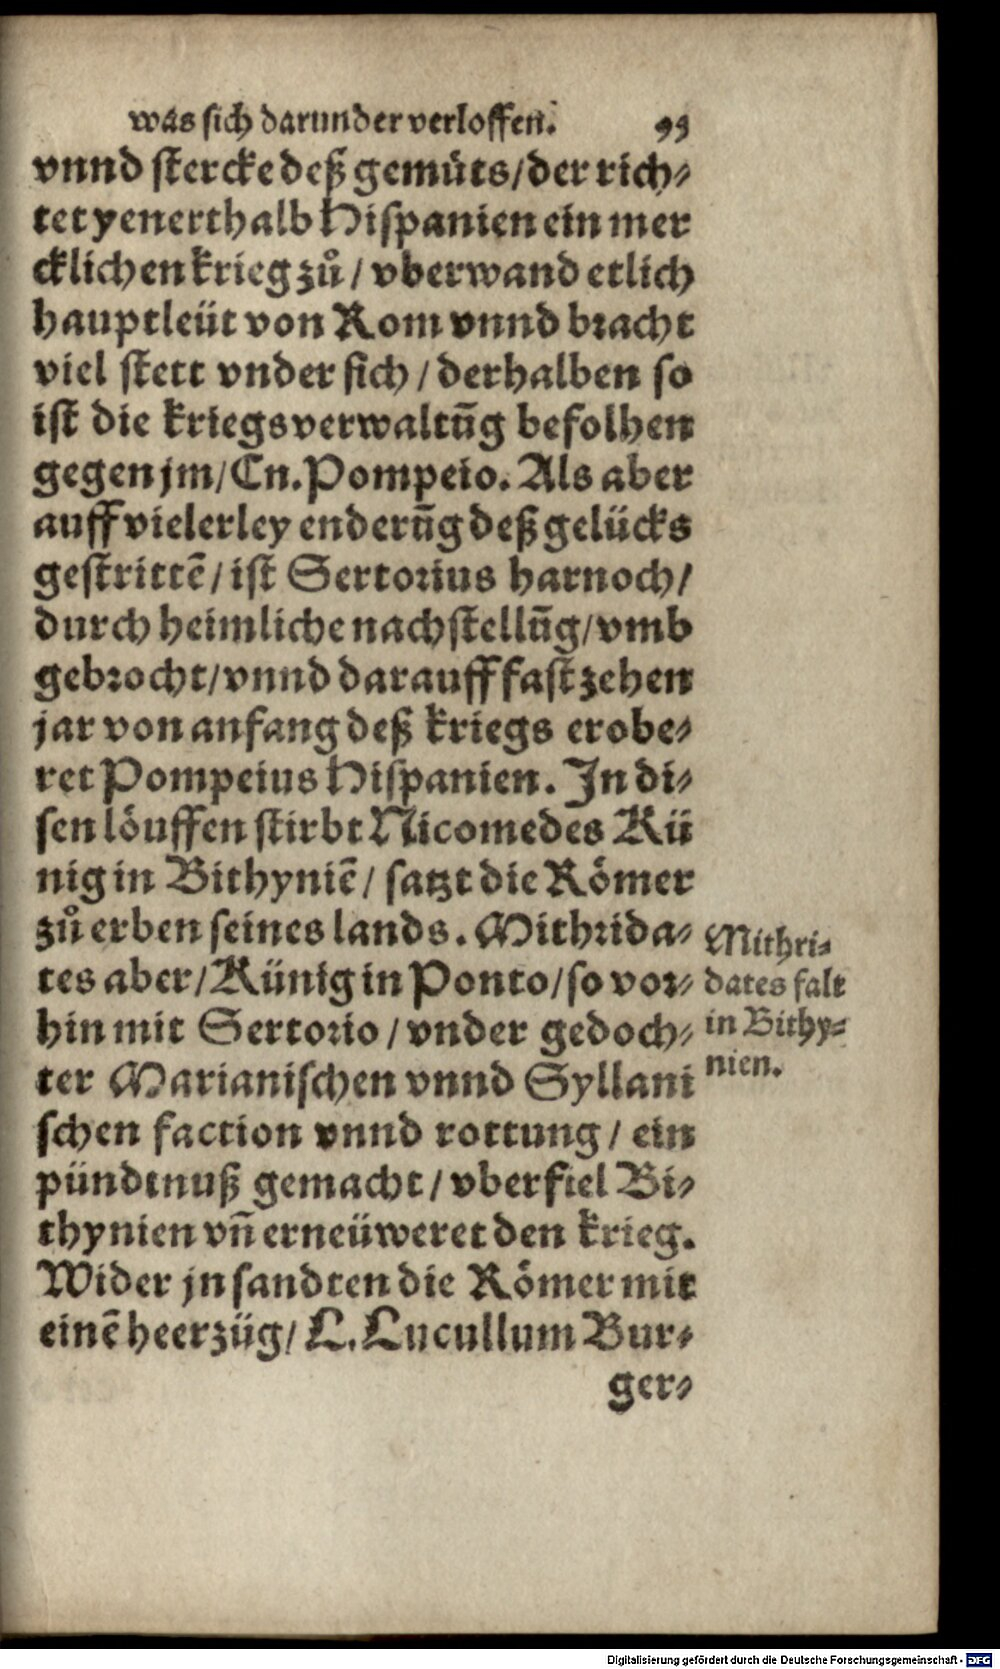 was sich darunder verloffen. 99
vnnd stercke deß gemüts/der rich⸗
tet yenerthalb Hispanien ein mer
cklichen krieg zů/ vberwand etlich
hauptleüt von Rom vnnd bracht
viel stett vnder sich / derhalben so
ist die kriegsverwaltūg befolhen
gegen jm/ Cn. Pompeio. Als aber
auff vielerley enderūg deß gelücks
gestrittē/ ist Sertorius harnoch/
durch heimliche nachstellūg/ vmb
gebrocht/ vnnd darauff fast zehen
jar von anfang deß kriegs erobe⸗
ret Pompeius Hispanien. In di⸗
sen löuffen stirbt Nicomedes Kü
nig in Bithyniē/ satzt die Römer
zů erben seines lands. Mithrida⸗
tes aber/ Künig in Ponto/ so vor⸗
hin mit Sertorio/ vnder gedoch⸗
ter Marianischen vnnd Syllani
schen faction vnnd rottung/ ein
pündtnuß gemacht/ vberfiel Bi⸗
thynien vñ erneüweret den krieg.
Wider jn sandten die Römer mit
einē heerzüg/ L. Lucullum Bur⸗
ger⸗
Mithri⸗
dates falt
in Bithy⸗
nien.
Digitalisierung gefördert durch die Deutsche Forschungsgemeinschaft - DFG